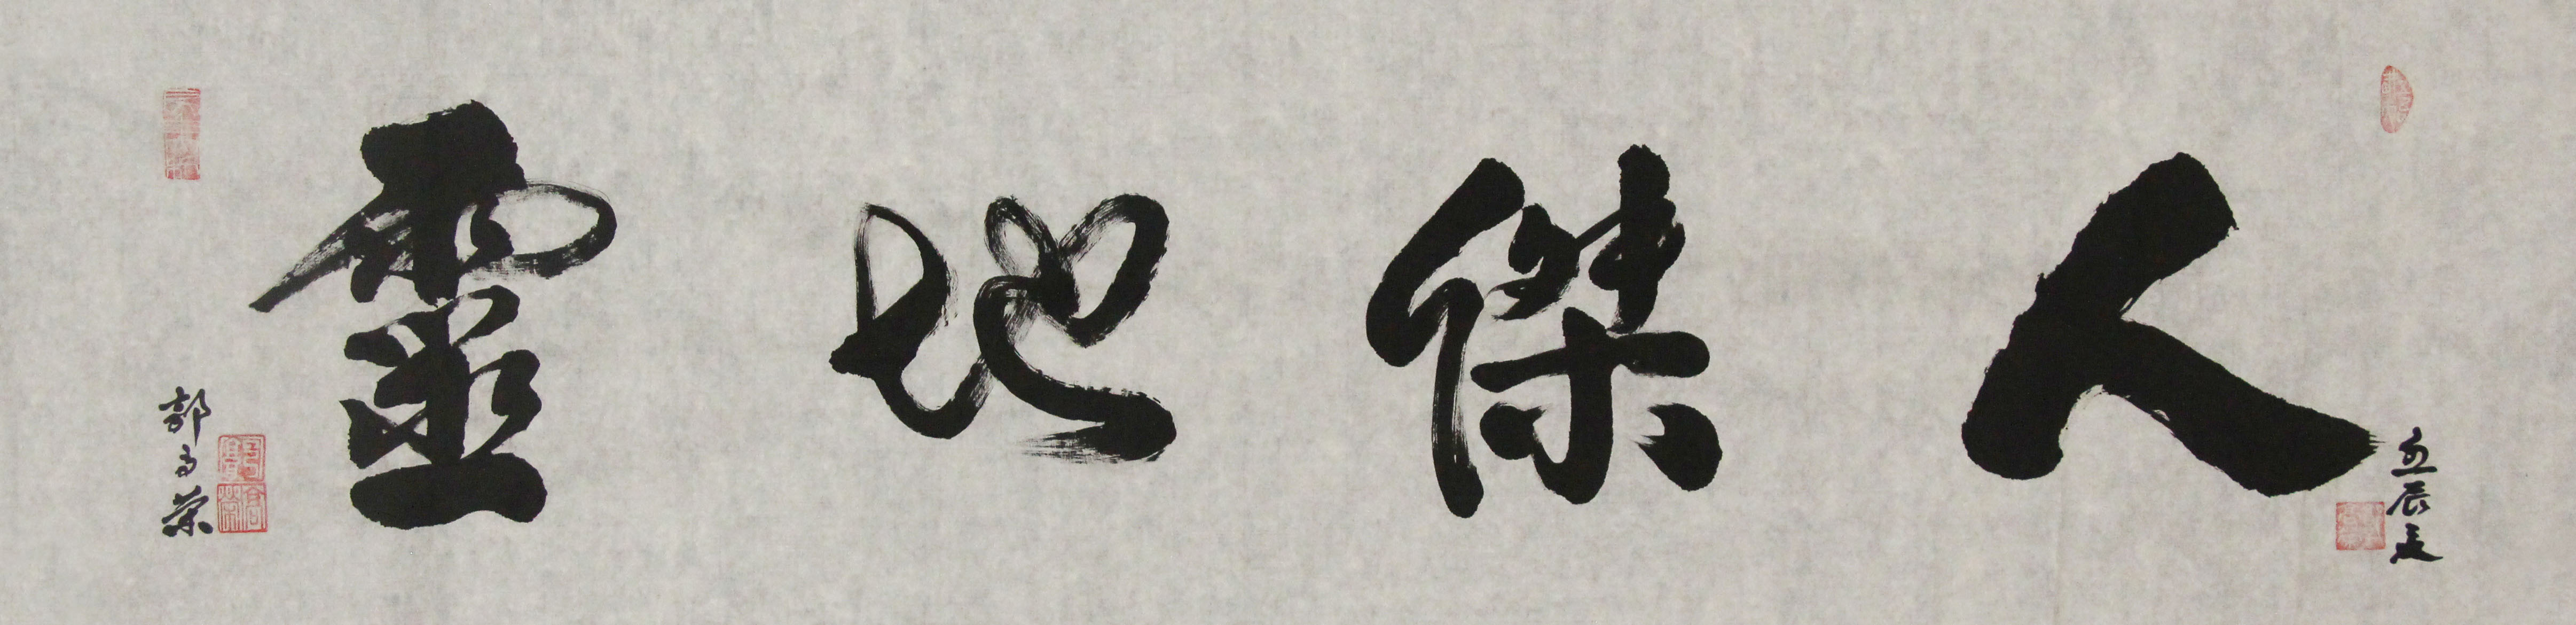 人傑地靈
壬辰夏
郭高榮